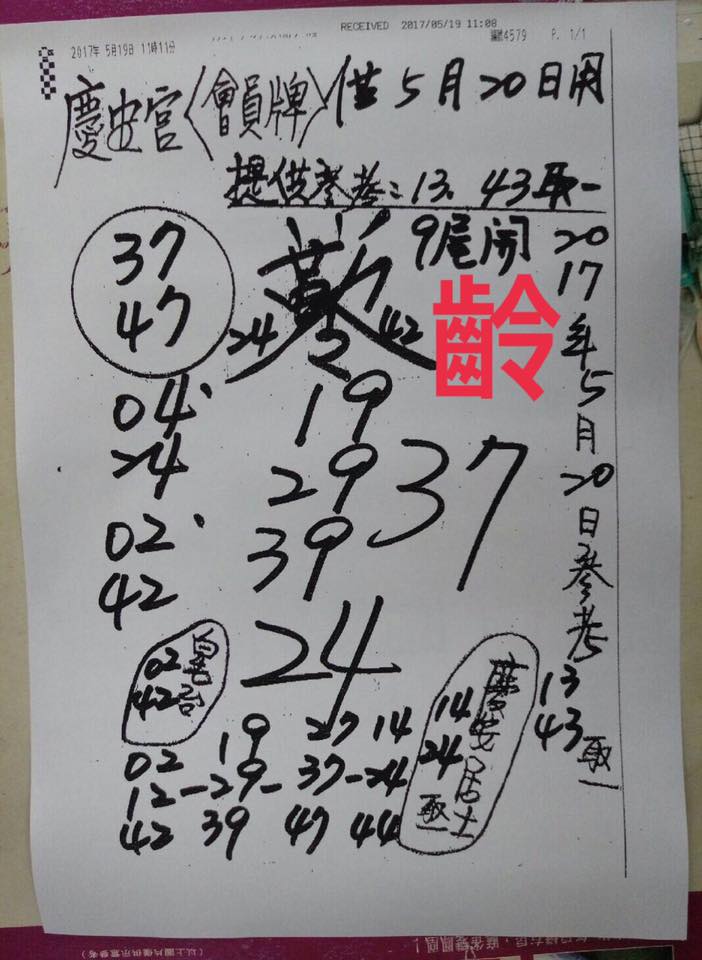 RECEIVED 2017/05/19 11:08
2017年 5月19日 11時11分
4579 P. 1/1
慶安宮〈會員牌〉供5月20日用
提供參考:13、43取一
37
47
9尾開
24 2 42
齡
04
24
02
42
19
29
39
37
24
2017年5月20日參考
13
43取一
02
42
慶安居士
14
24
取一
19 27 14
02
12-29-37-24
42 39 47 44
(以上圖片僅供示意參考)